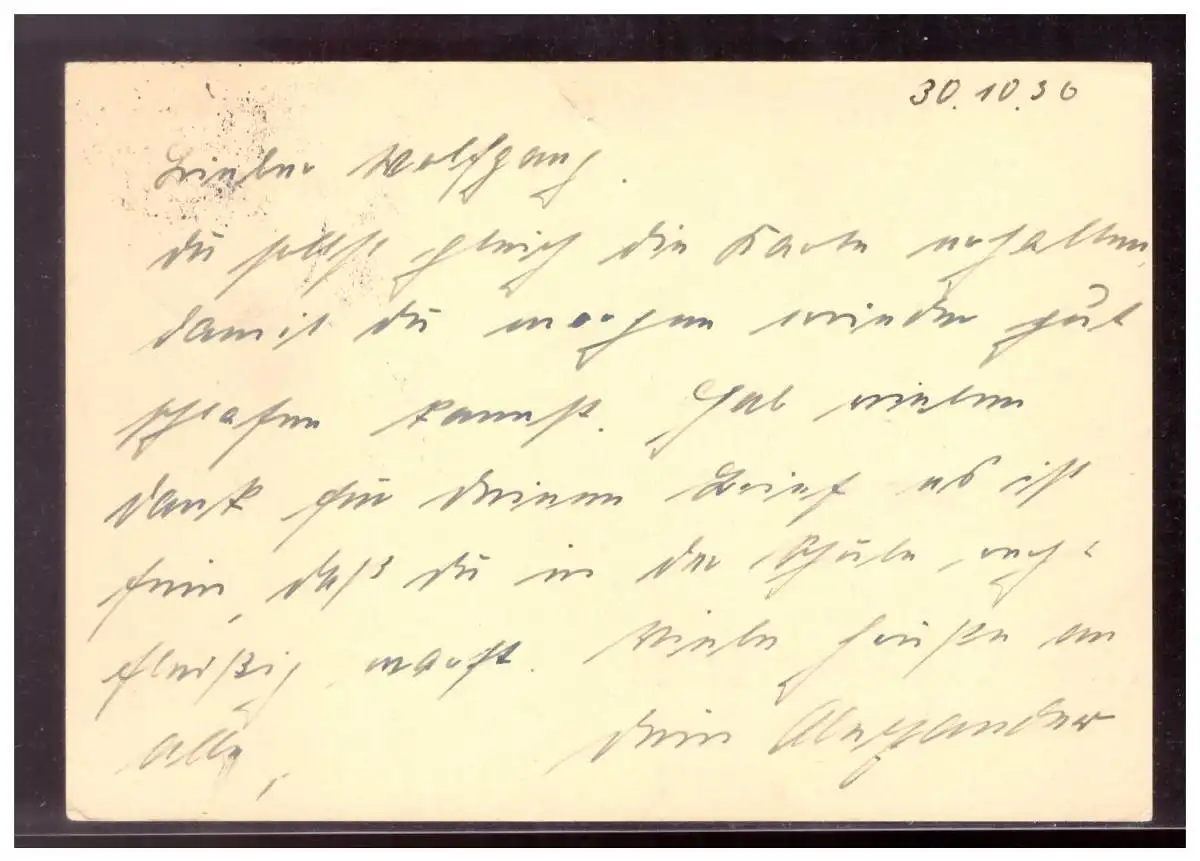 30.10.36
Lieber Wolfgang.
du sollst gleich die Karte erhalten,
damit du morgen wieder gut
schlafen kannst. Hab vielen
dank für deinen Brief es ist
fein, daß du in der Schule recht
fleißig warst. Viele Grüße an
alle,
dein Alexander